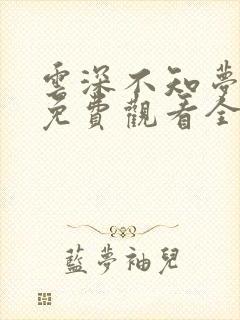 雲深不知夢
免費觀看全
藍夢袖兒